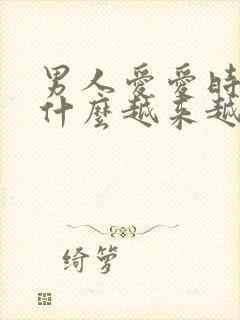 男人愛愛時
什麼越來越
绮箩